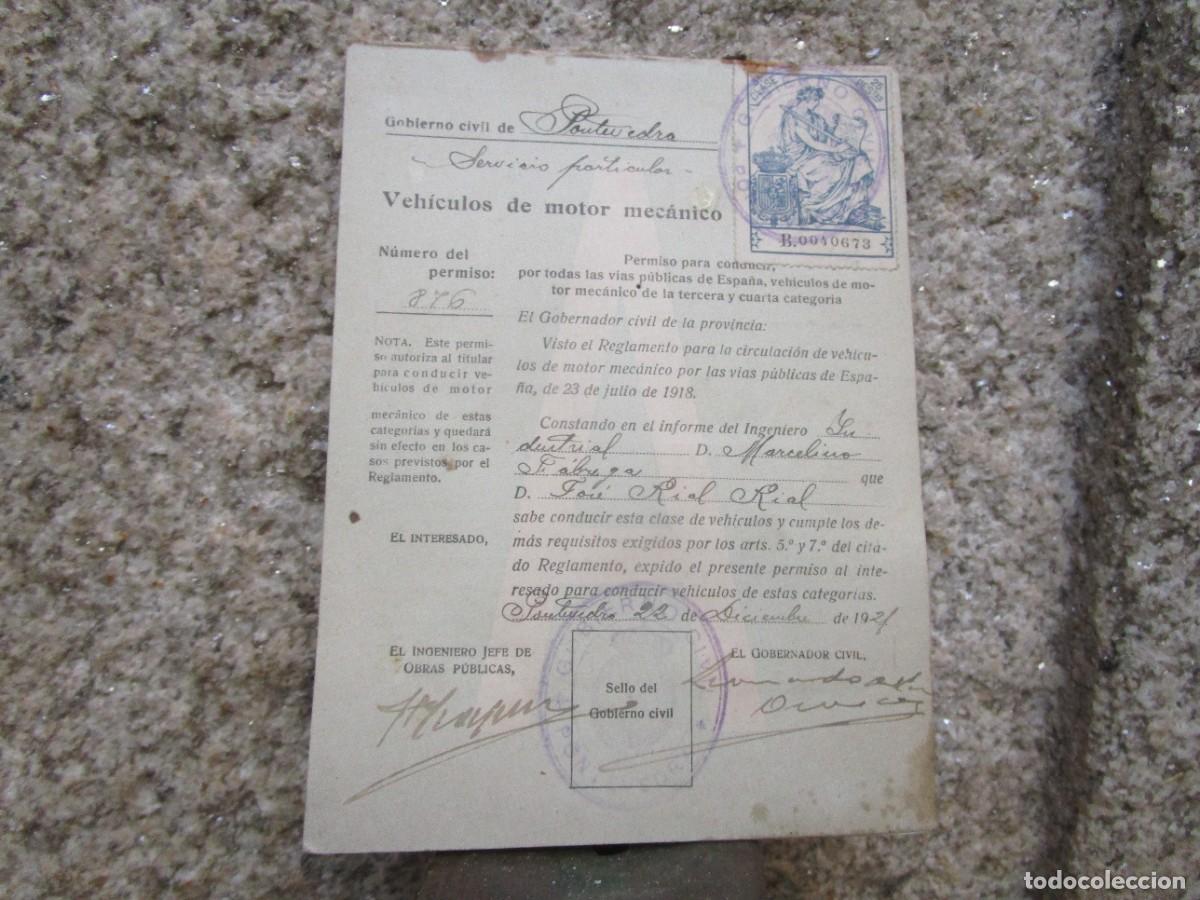 Gobierno civil de Pontevedra
Servicio particular
Vehículos de motor mecánico
CLASE
B.0040673
Número del
permiso:
876
NOTA. Este permi-
so autoriza al titular
para conducir ve-
hículos de motor
mecánico de estas
categorías y quedará
sin efecto en los ca-
sos previstos por el
Reglamento.
EL INTERESADO,
Permiso para conducir,
por todas las vías públicas de España, vehículos de mo-
tor mecánico de la tercera y cuarta categoría
El Gobernador civil de la provincia:
Visto el Reglamento para la circulación de vehícu-
los de motor mecánico por las vías públicas de Espa-
ña, de 23 de julio de 1918.
Constando en el informe del Ingeniero In
dustrial D. Marcelino
Fábrega que
D. José Rial Rial
sabe conducir esta clase de vehículos y cumple los de-
más requisitos exigidos por los arts. 5.º y 7.º del cita-
do Reglamento, expido el presente permiso al inte-
resado para conducir vehículos de estas categorías.
Pontevedra 22 de Diciembre de 1921
EL INGENIERO JEFE DE
OBRAS PÚBLICAS,
EL GOBERNADOR CIVIL,
Sello del
Gobierno civil
todocoleccion